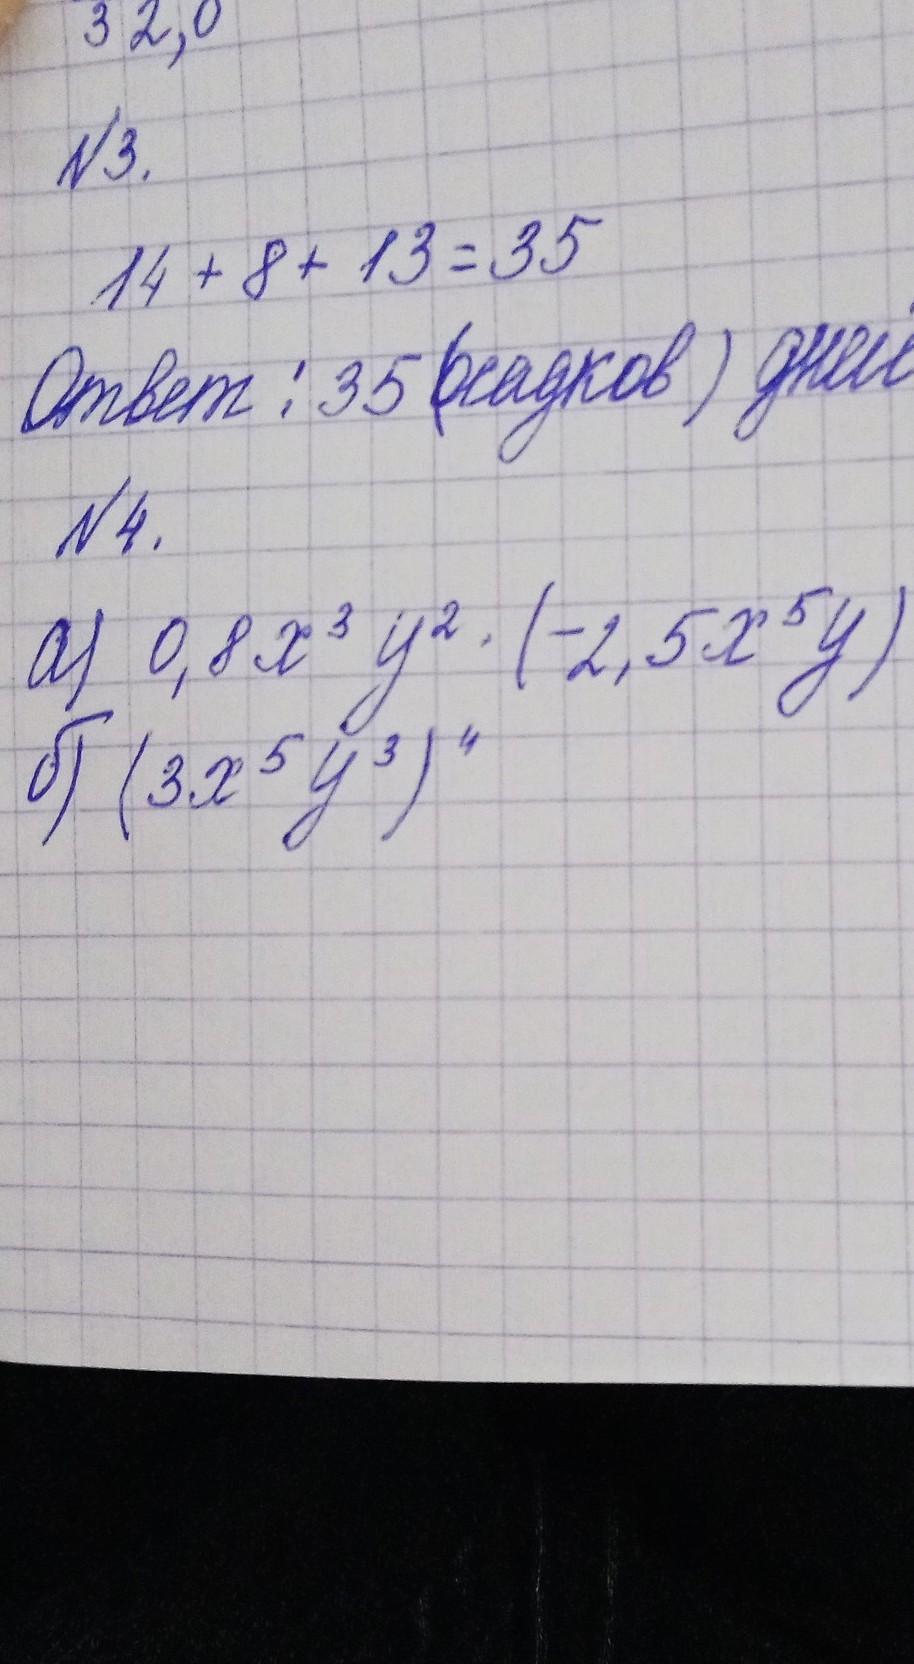 32,0
№3.
14 + 8 + 13 = 35
Ответ : 35 (осадков) дней
№4.
а) 0,8x³ y² · (-2,5x⁵y)
б) (3x⁵y³)⁴